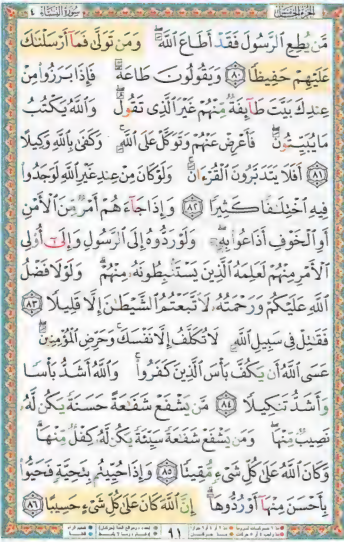 الجزء الخامس
سورة النساء ٤
مَّن يُطِعِ ٱلرَّسُولَ فَقَدْ أَطَاعَ ٱللَّهَۖ وَمَن تَوَلَّىٰ فَمَآ أَرْسَلْنَٰكَ
عَلَيْهِمْ حَفِيظًا ۝٨٠ وَيَقُولُونَ طَاعَةٌ فَإِذَا بَرَزُوا۟ مِنْ
عِندِكَ بَيَّتَ طَآئِفَةٌ مِّنْهُمْ غَيْرَ ٱلَّذِى تَقُولُۖ وَٱللَّهُ يَكْتُبُ
مَا يُبَيِّتُونَۖ فَأَعْرِضْ عَنْهُمْ وَتَوَكَّلْ عَلَى ٱللَّهِۚ وَكَفَىٰ بِٱللَّهِ وَكِيلًا
۝٨١ أَفَلَا يَتَدَبَّرُونَ ٱلْقُرْءَانَۚ وَلَوْ كَانَ مِنْ عِندِ غَيْرِ ٱللَّهِ لَوَجَدُوا۟
فِيهِ ٱخْتِلَٰفًا كَثِيرًا ۝٨٢ وَإِذَا جَآءَهُمْ أَمْرٌ مِّنَ ٱلْأَمْنِ
أَوِ ٱلْخَوْفِ أَذَاعُوا۟ بِهِۦۖ وَلَوْ رَدُّوهُ إِلَى ٱلرَّسُولِ وَإِلَىٰٓ أُو۟لِى
ٱلْأَمْرِ مِنْهُمْ لَعَلِمَهُ ٱلَّذِينَ يَسْتَنۢبِطُونَهُۥ مِنْهُمْۗ وَلَوْلَا فَضْلُ
ٱللَّهِ عَلَيْكُمْ وَرَحْمَتُهُۥ لَٱتَّبَعْتُمُ ٱلشَّيْطَٰنَ إِلَّا قَلِيلًا ۝٨٣
فَقَٰتِلْ فِى سَبِيلِ ٱللَّهِ لَا تُكَلَّفُ إِلَّا نَفْسَكَۚ وَحَرِّضِ ٱلْمُؤْمِنِينَۖ
عَسَى ٱللَّهُ أَن يَكُفَّ بَأْسَ ٱلَّذِينَ كَفَرُوا۟ۚ وَٱللَّهُ أَشَدُّ بَأْسًا
وَأَشَدُّ تَنكِيلًا ۝٨٤ مَّن يَشْفَعْ شَفَٰعَةً حَسَنَةً يَكُن لَّهُۥ
نَصِيبٌ مِّنْهَاۖ وَمَن يَشْفَعْ شَفَٰعَةً سَيِّئَةً يَكُن لَّهُۥ كِفْلٌ مِّنْهَاۗ
وَكَانَ ٱللَّهُ عَلَىٰ كُلِّ شَىْءٍ مُّقِيتًا ۝٨٥ وَإِذَا حُيِّيتُم بِتَحِيَّةٍ فَحَيُّوا۟
بِأَحْسَنَ مِنْهَآ أَوْ رُدُّوهَآۗ إِنَّ ٱللَّهَ كَانَ عَلَىٰ كُلِّ شَىْءٍ حَسِيبًا ۝٨٦
٩١